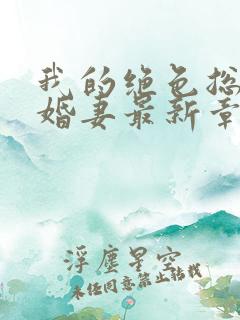 我的绝色总
婚妻最新章
浮尘星空
未经同意禁止转载